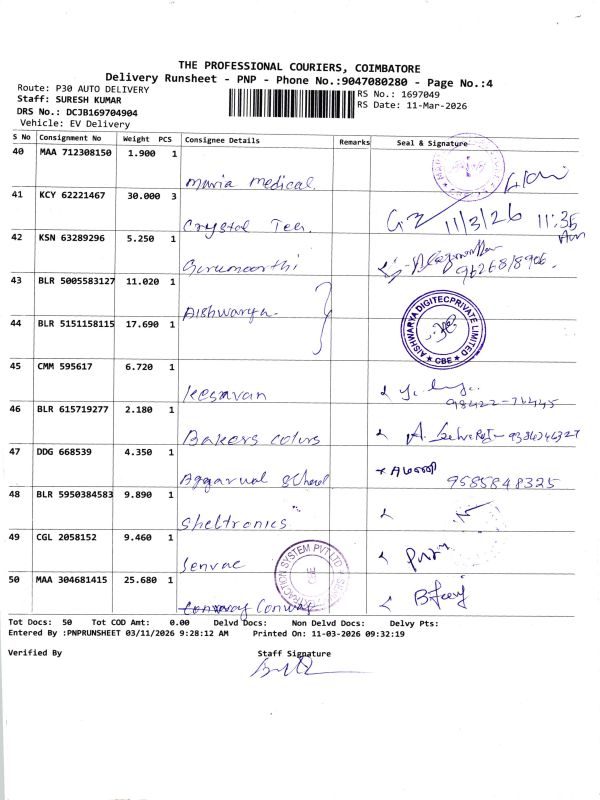 THE PROFESSIONAL COURIERS, COIMBATORE
Delivery Runsheet - PNP - Phone No.:9047080280 - Page No.:4
Route: P30 AUTO DELIVERY
Staff: SURESH KUMAR
DRS No.: DCJB169704904
Vehicle: EV Delivery
RS No.: 1697049
RS Date: 11-Mar-2026
S No Consignment No Weight PCS Consignee Details Remarks Seal & Signature
40 MAA 712308150 1.900 1
Maria medical.
41 KCY 62221467 30.000 3
Crystal Tee. 11/3/26 11:35 Am
42 KSN 63289296 5.250 1
Gurumoorthi
43 BLR 5005583127 11.020 1
Aishwarya.
44 BLR 5151158115 17.690 1
AISHWARYA DIGITEC PRIVATE LIMITED
CBE
45 CMM 595617 6.720 1
Kesavan
46 BLR 615719277 2.180 1
Bakers colurs
47 DDG 668539 4.350 1
Aggarwal School 9585848325
48 BLR 5950384583 9.890 1
Sheltronics
49 CGL 2058152 9.460 1
Senvac
50 MAA 304681415 25.680 1
Conway
Tot Docs: 50 Tot COD Amt: 0.00 Delvd Docs: Non Delvd Docs: Delvy Pts:
Entered By :PNPRUNSHEET 03/11/2026 9:28:12 AM Printed On: 11-03-2026 09:32:19
Verified By Staff Signature